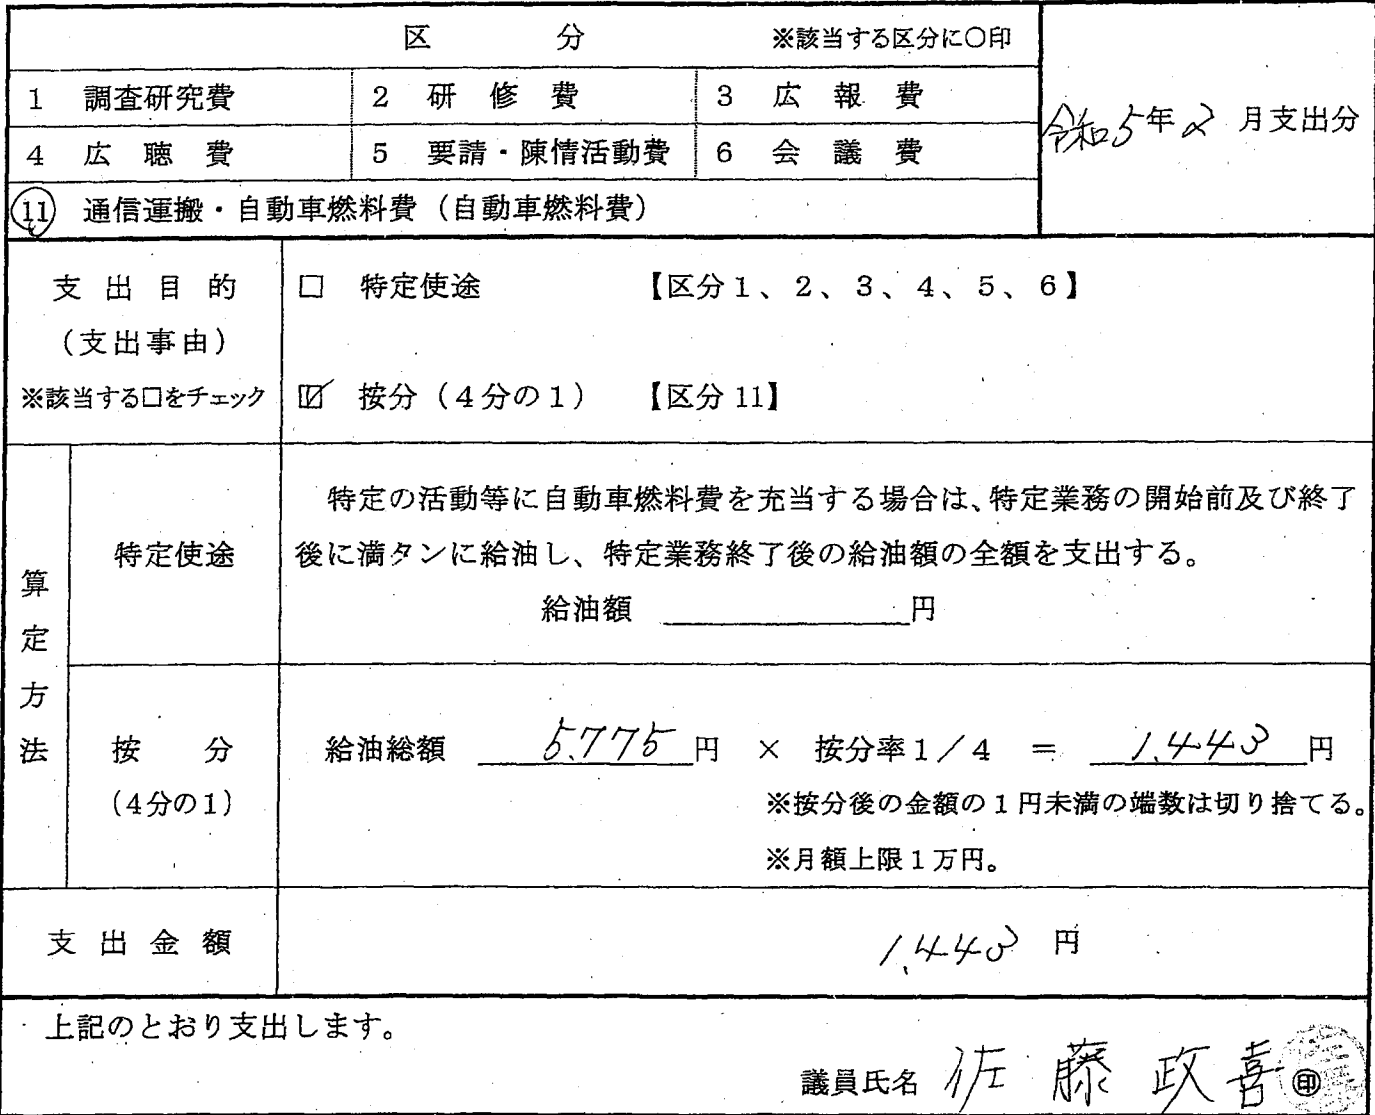 区 分 ※該当する区分に〇印
1 調査研究費 2 研修費 3 広報費
令和5年2月支出分
4 広聴費 5 要請・陳情活動費 6 会議費
11 通信運搬・自動車燃料費（自動車燃料費）
支出目的
（支出事由）
※該当する□をチェック
□ 特定使途 【区分1、2、3、4、5、6】
☑ 按分（4分の1） 【区分11】
算定方法
特定使途
特定の活動等に自動車燃料費を充当する場合は、特定業務の開始前及び終了
後に満タンに給油し、特定業務終了後の給油額の全額を支出する。
給油額 円
按分
（4分の1）
給油総額 5,775 円 × 按分率1／4 ＝ 1,443 円
※按分後の金額の1円未満の端数は切り捨てる。
※月額上限1万円。
支出金額 1,443 円
上記のとおり支出します。
議員氏名 佐藤政喜 ㊞